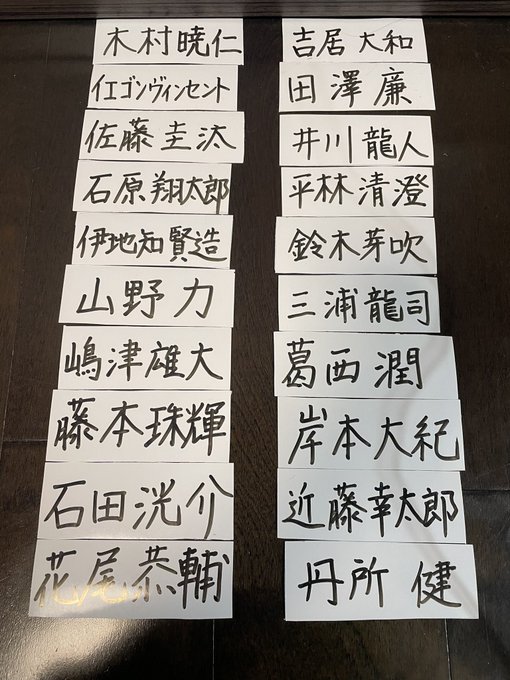 木村暁仁
イエゴンヴィンセント
佐藤圭汰
石原翔太郎
伊地知賢造
山野力
嶋津雄大
藤本珠輝
石田洸介
花尾恭輔
吉居大和
田澤廉
井川龍人
平林清澄
鈴木芽吹
三浦龍司
葛西潤
岸本大紀
近藤幸太郎
丹所健